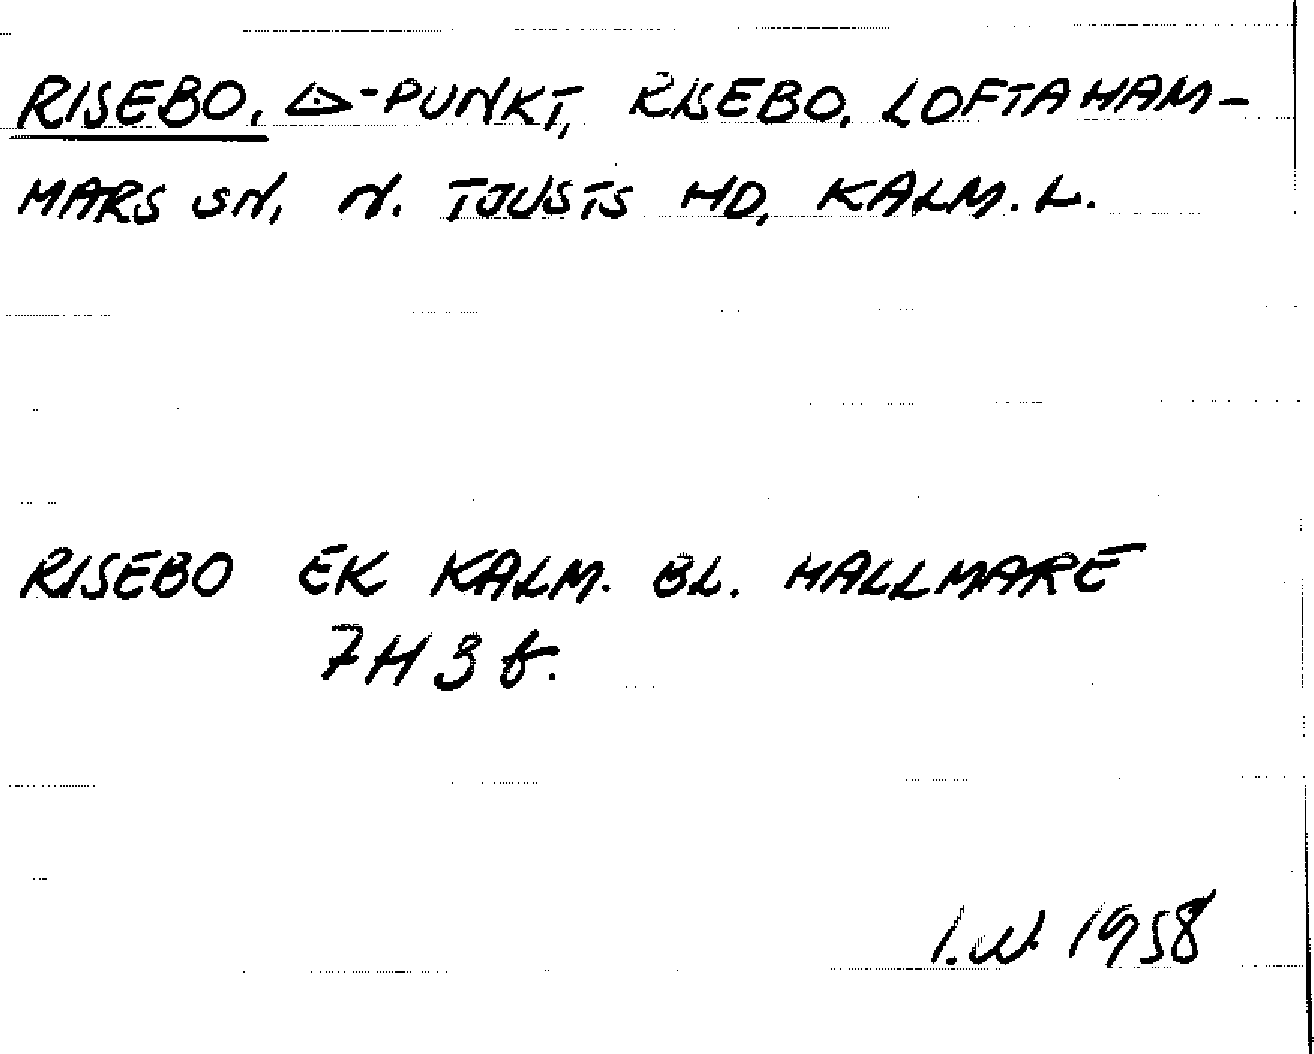 RISEBO, △-PUNKT, RISEBO, LOFTAHAM-
MARS SN, N. TJUSTS HD, KALM. L.
RISEBO EK KALM. BL. HALLMARE
7H 3 f.
I.W. 1958